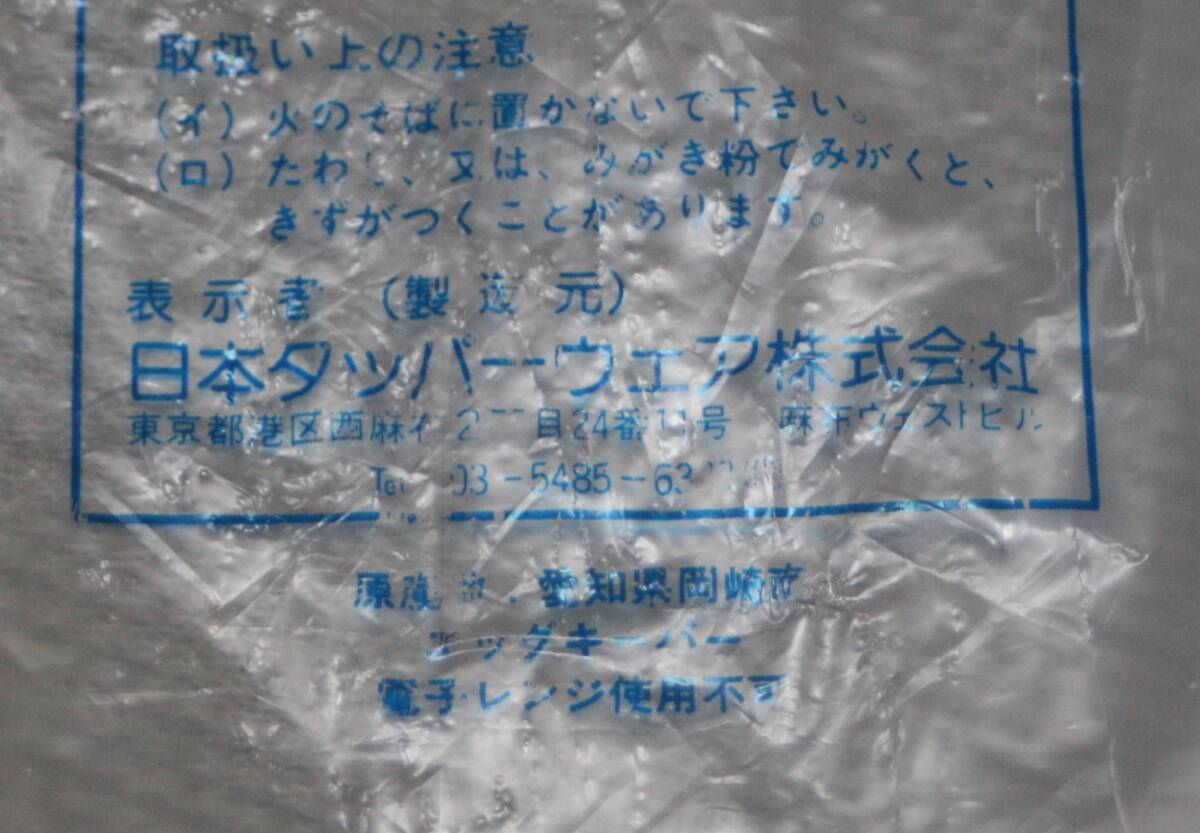 取扱い上の注意
(イ) 火のそばに置かないで下さい。
(ロ) たわし、又は、みがき粉でみがくと、
きずがつくことがあります。
表示者 (製造元)
日本タッパーウェア株式会社
東京都港区西麻布2丁目24番11号 麻布ウェストヒル
Tel 03-5485-63
原産地:愛知県岡崎市
エッグキーパー
電子レンジ使用不可